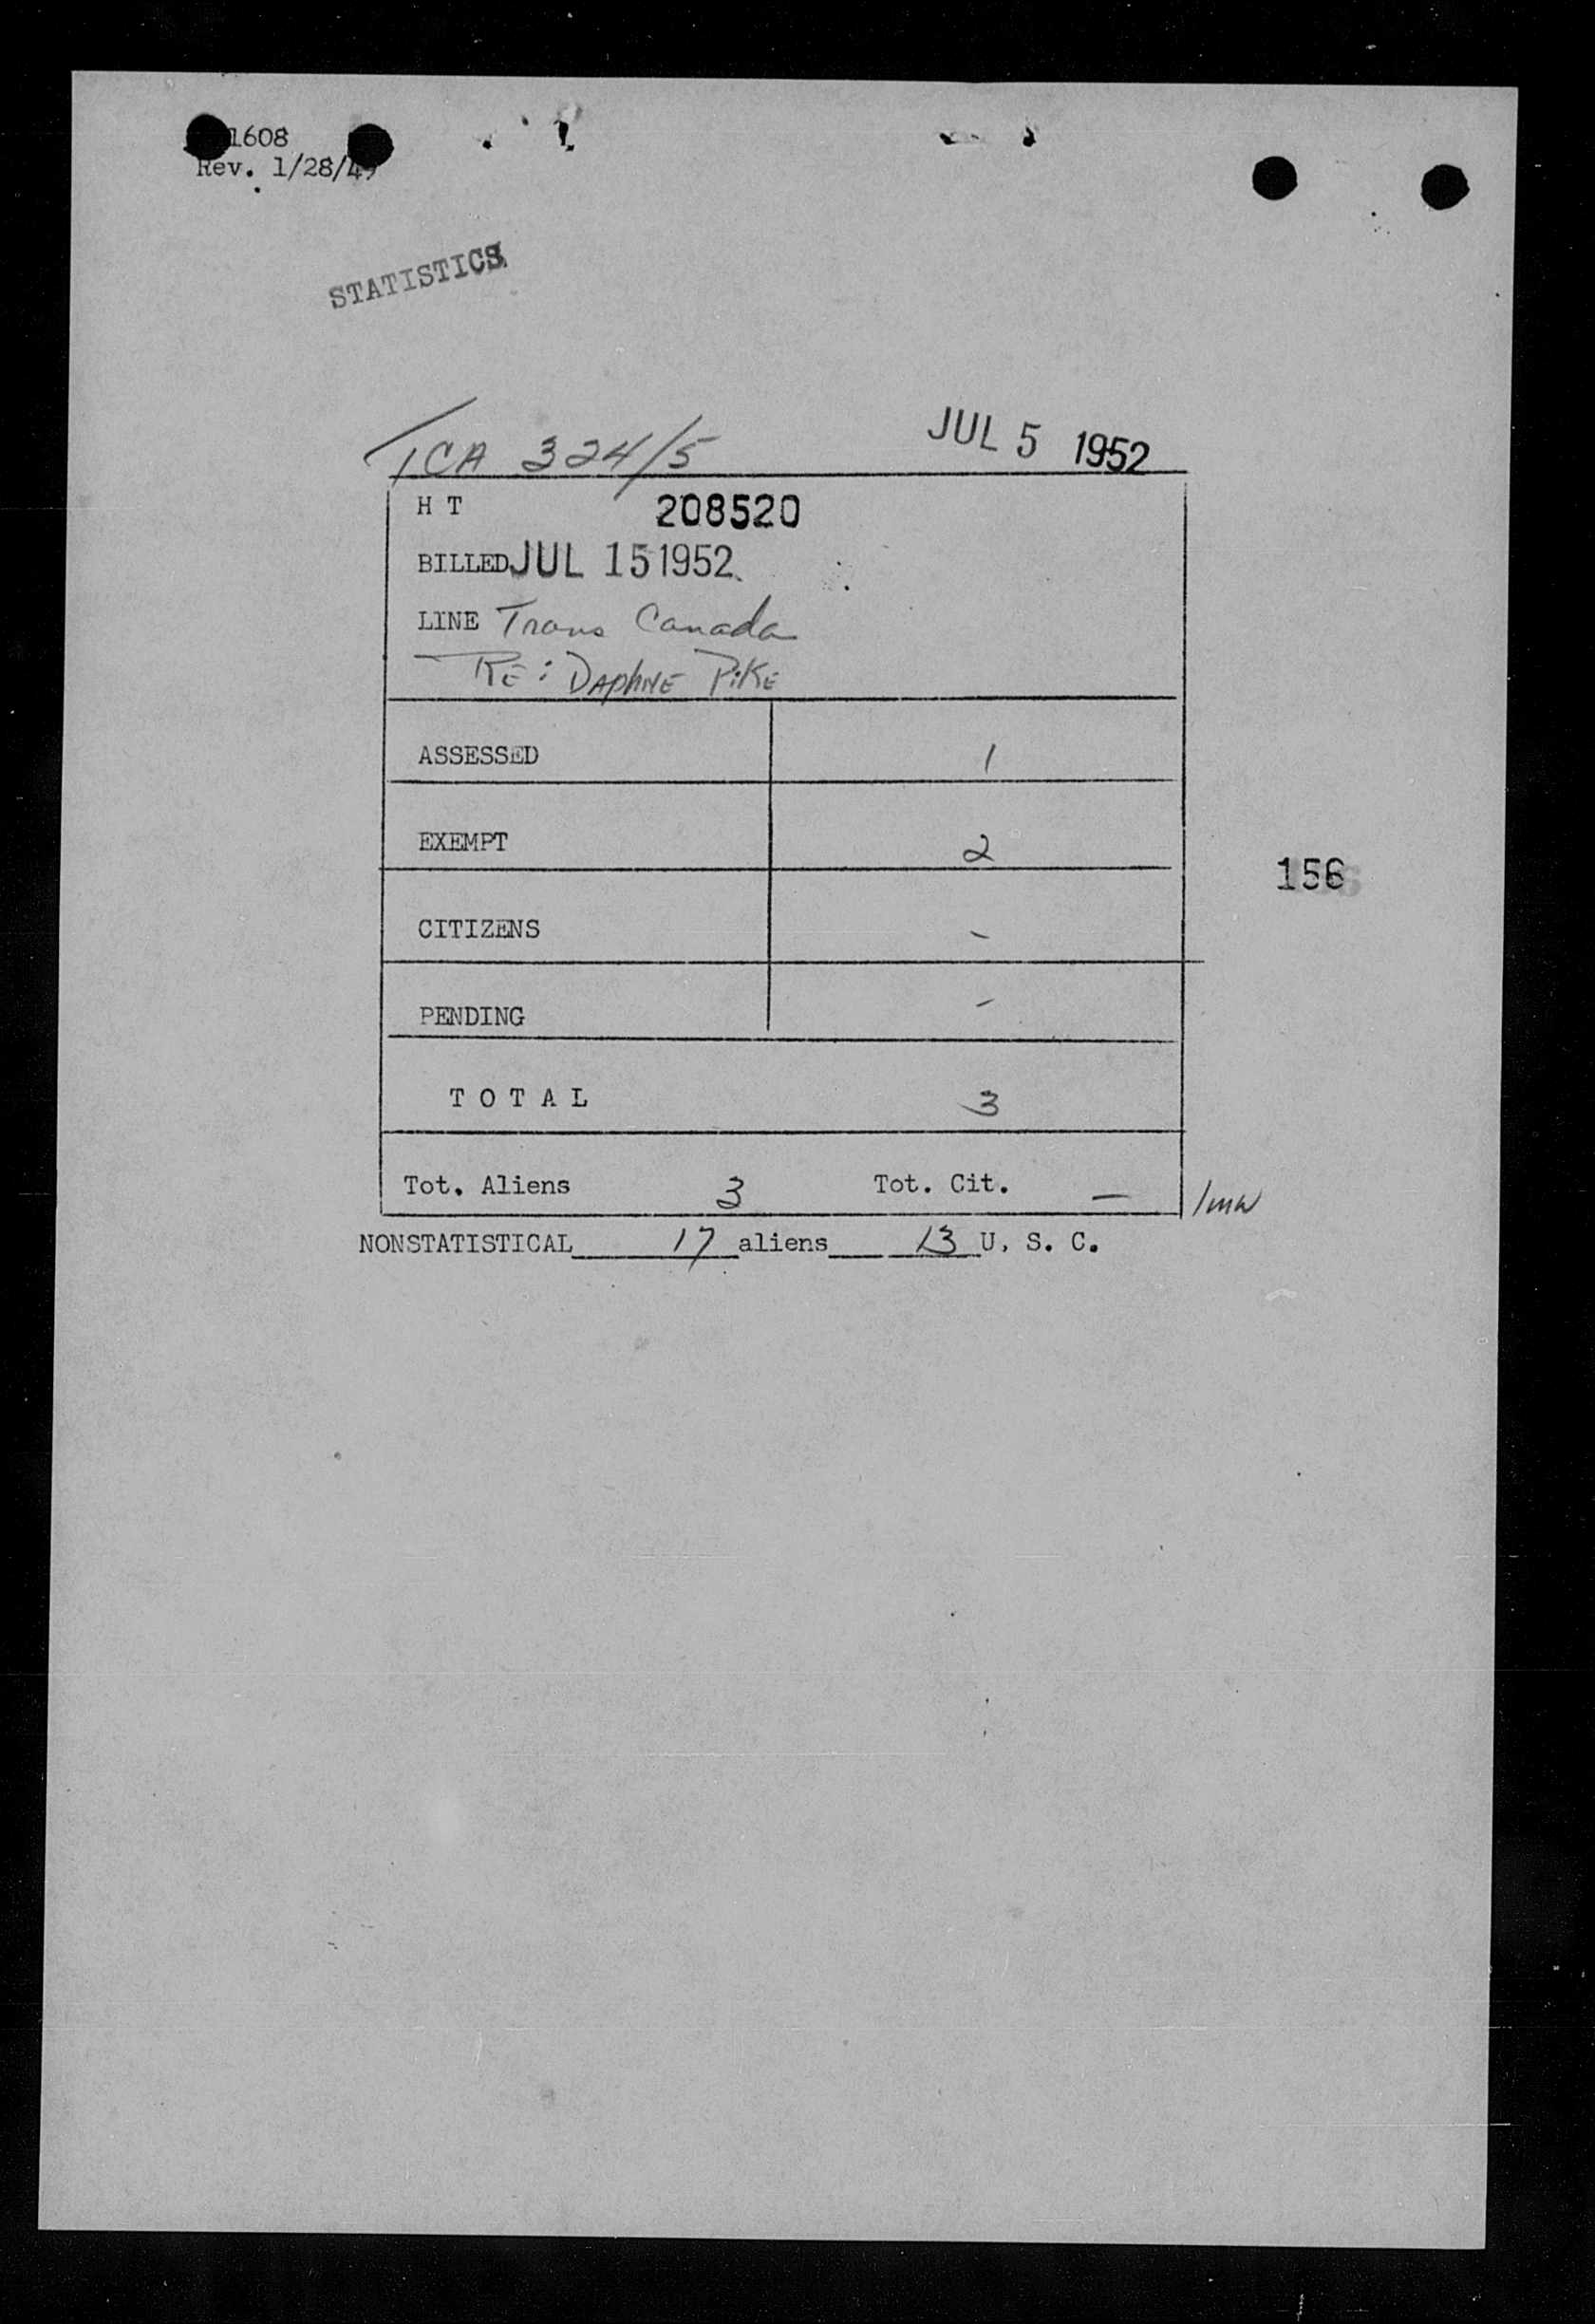 1608
Rev. 1/28/49
STATISTICS
TCA 324/5 JUL 5 1952
H T 208520
BILLED JUL 15 1952
LINE Trans Canada
RE: DAPHNE PIKE
ASSESSED 1
EXEMPT 2
156
CITIZENS -
PENDING -
T O T A L 3
Tot. Aliens 3 Tot. Cit. —
NONSTATISTICAL 17 aliens 13 U. S. C.